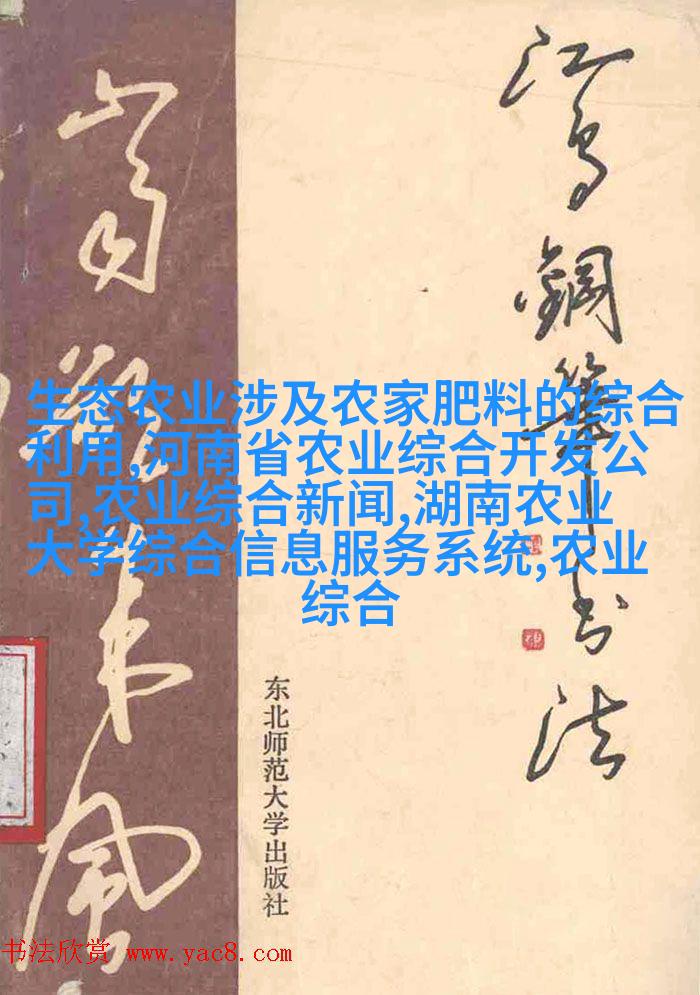 江鸟鋼筆书法
生态农业涉及农家肥料的综合
利用,河南省农业综合开发公
司,农业综合新闻,湖南农业
大学综合信息服务系统,农业
综合
东北师范大学出版社
书法欣赏 www.yac8.com